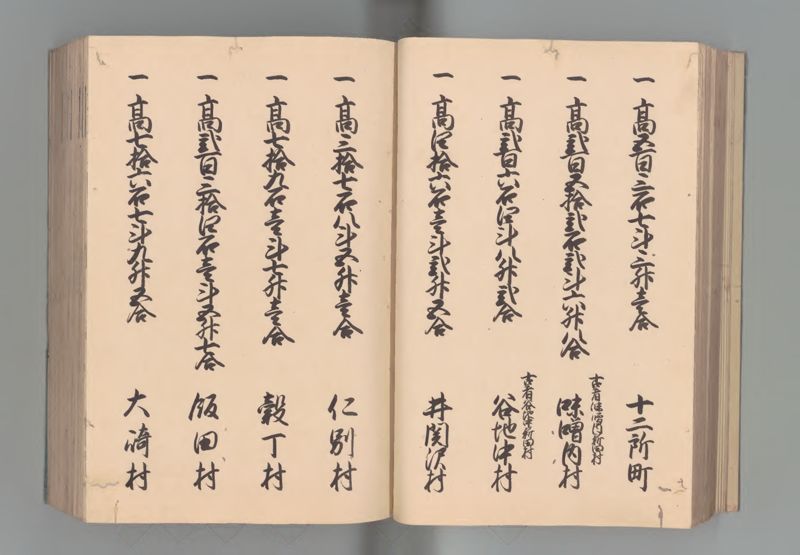 一 高五百三石七斗三升壱合 十二所町
一 高弐百五拾弐石弐斗六升八合 味噌内村
古者味噌内新田村
一 高弐百六石四斗八升弐合 谷地中村
古者谷地中新田村
一 高四拾六石壱斗弐升五合 井関沢村
一 高三拾七石八斗五升壱合 仁別村
一 高七拾九石壱斗七升壱合 穀丁村
一 高弐百三拾四石壱斗五升七合 飯田村
一 高七拾六石七斗九升五合 大崎村